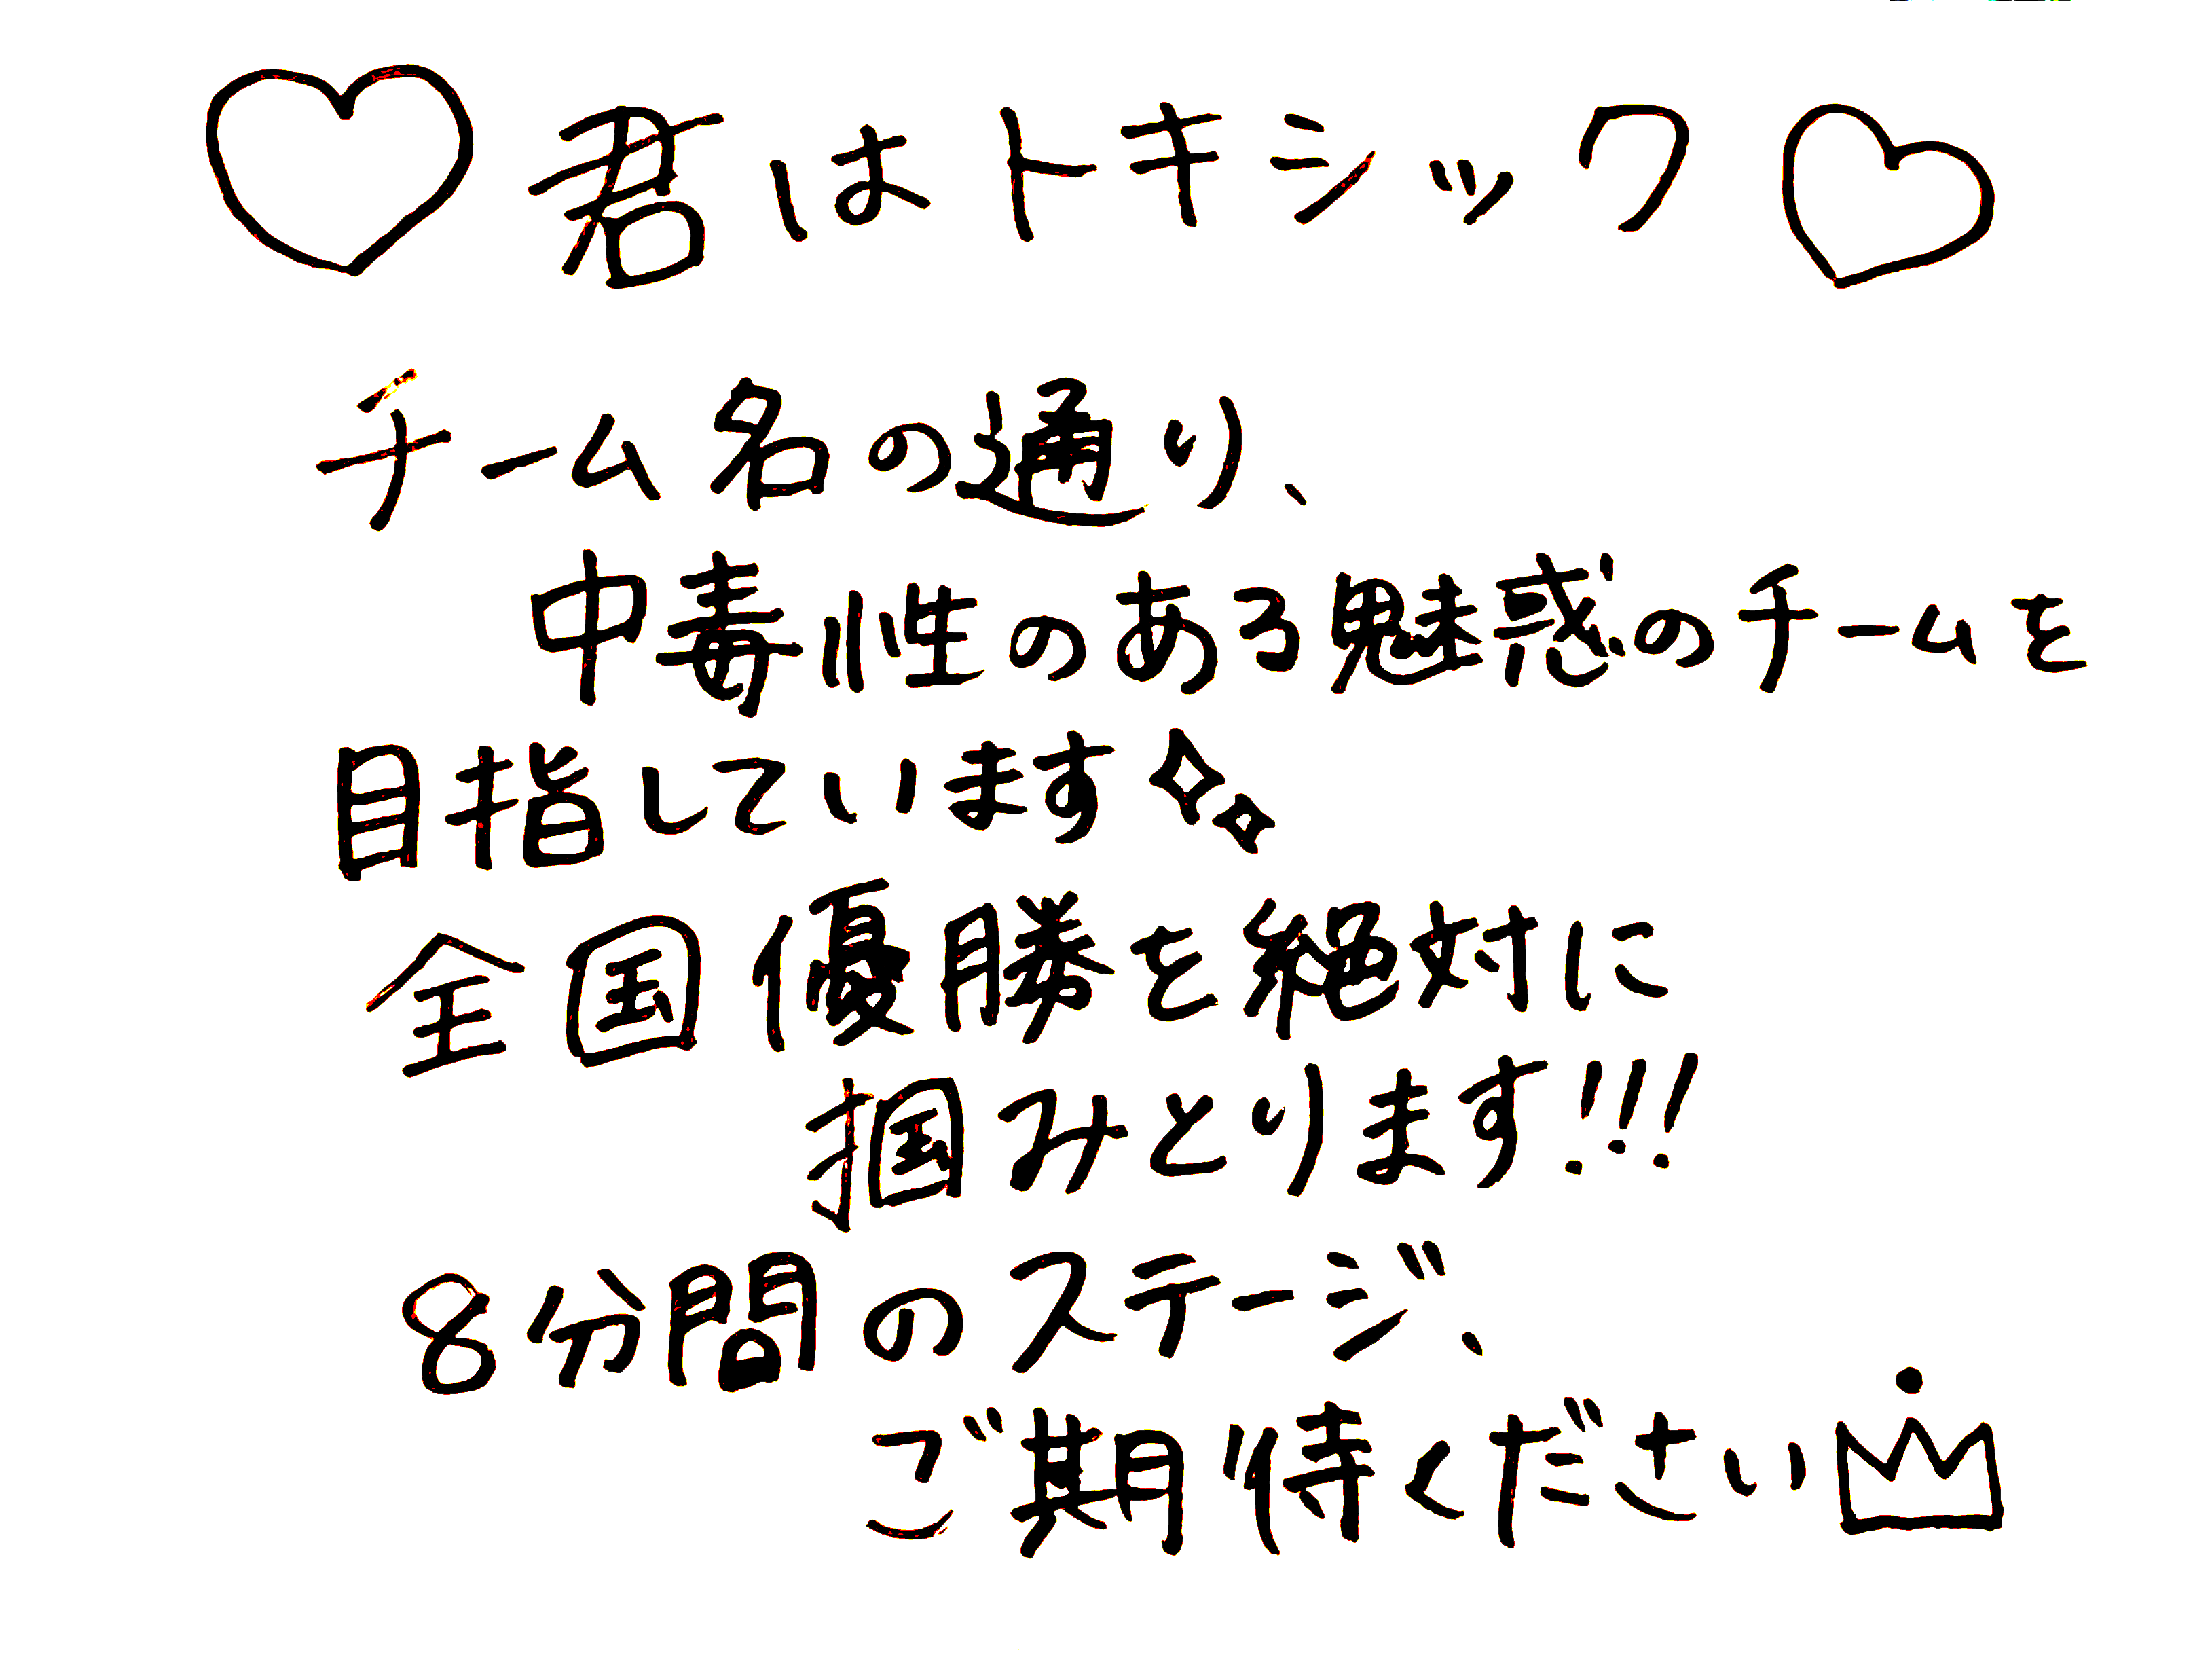 ♡君はトキシック♡
チーム名の通り、
中毒性のある魅惑のチームを
目指しています
全国優勝を絶対に
掴みとります!!!
8分間のステージ、
ご期待ください